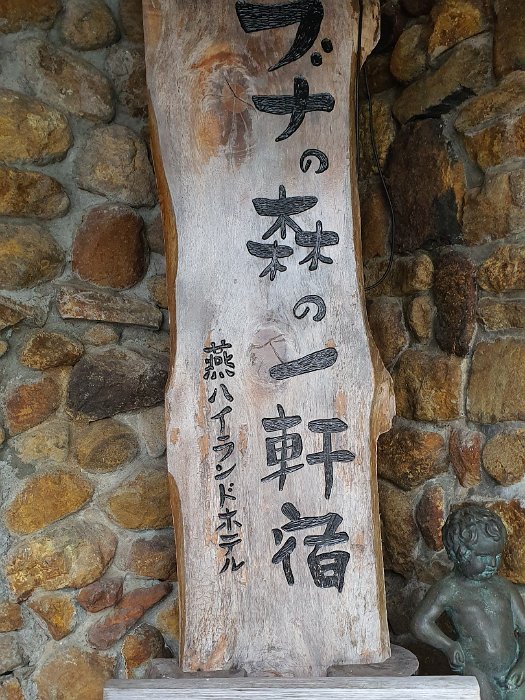 ブナの森の一軒宿
燕ハイランドホテル